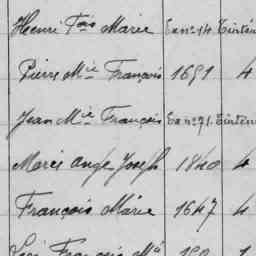 Henri Fois Marie Ex no 14.
Pierre Mie François 1691 4
Jean Mie François Ex no 71.
Marie Ange Joseph 1840 4
François Marie 1647 4
François